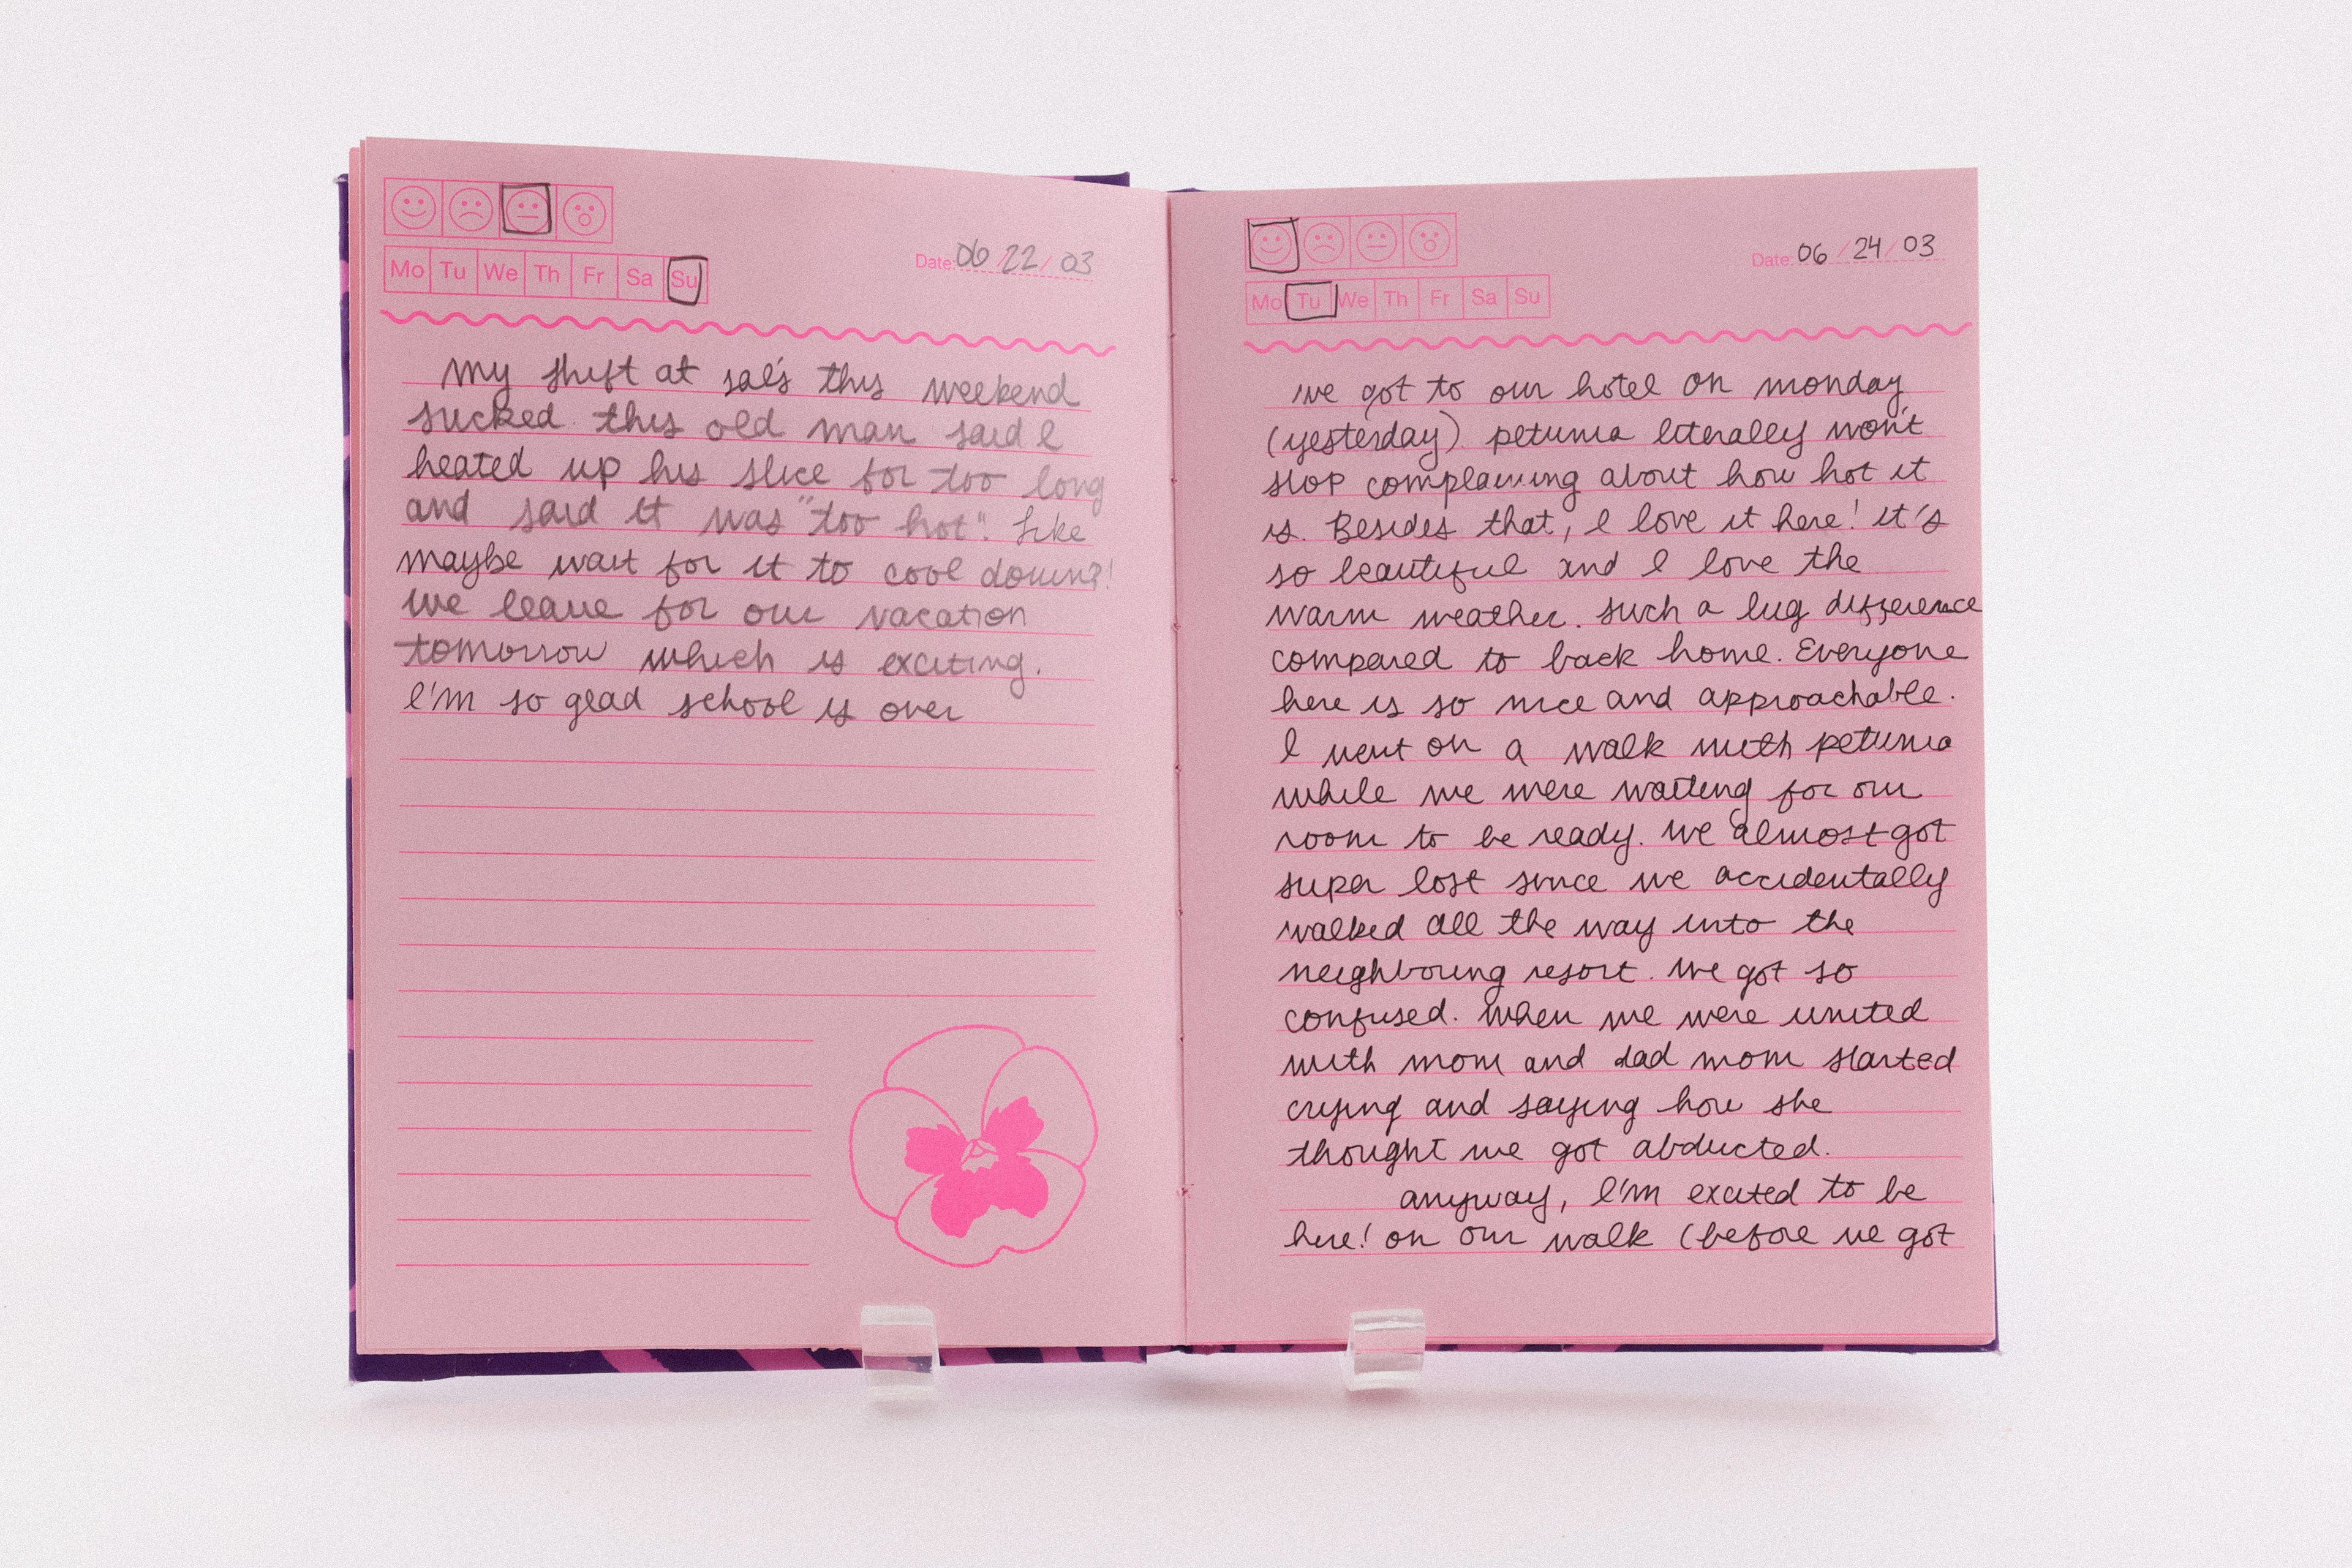 Mo Tu We Th Fr Sa Su
Date: 06/22/03
My shift at sal's this weekend
sucked. this old man said I
heated up his slice for too long
and said it was "too hot". Like
maybe wait for it to cool down?!
we leave for our vacation
tomorrow which is exciting.
I'm so glad school is over
Mo Tu We Th Fr Sa Su
Date: 06/24/03
we got to our hotel on monday
(yesterday). petunia literally won't
stop complaining about how hot it
is. Besides that, I love it here! it's
so beautiful and I love the
warm weather. such a big difference
compared to back home. Everyone
here is so nice and approachable.
I went on a walk with petunia
while we were waiting for our
room to be ready. we almost got
super lost since we accidentally
walked all the way into the
neighbouring resort. we got so
confused. when we were united
with mom and dad mom started
crying and saying how she
thought we got abducted.
anyway, I'm excited to be
here! on our walk (before we got